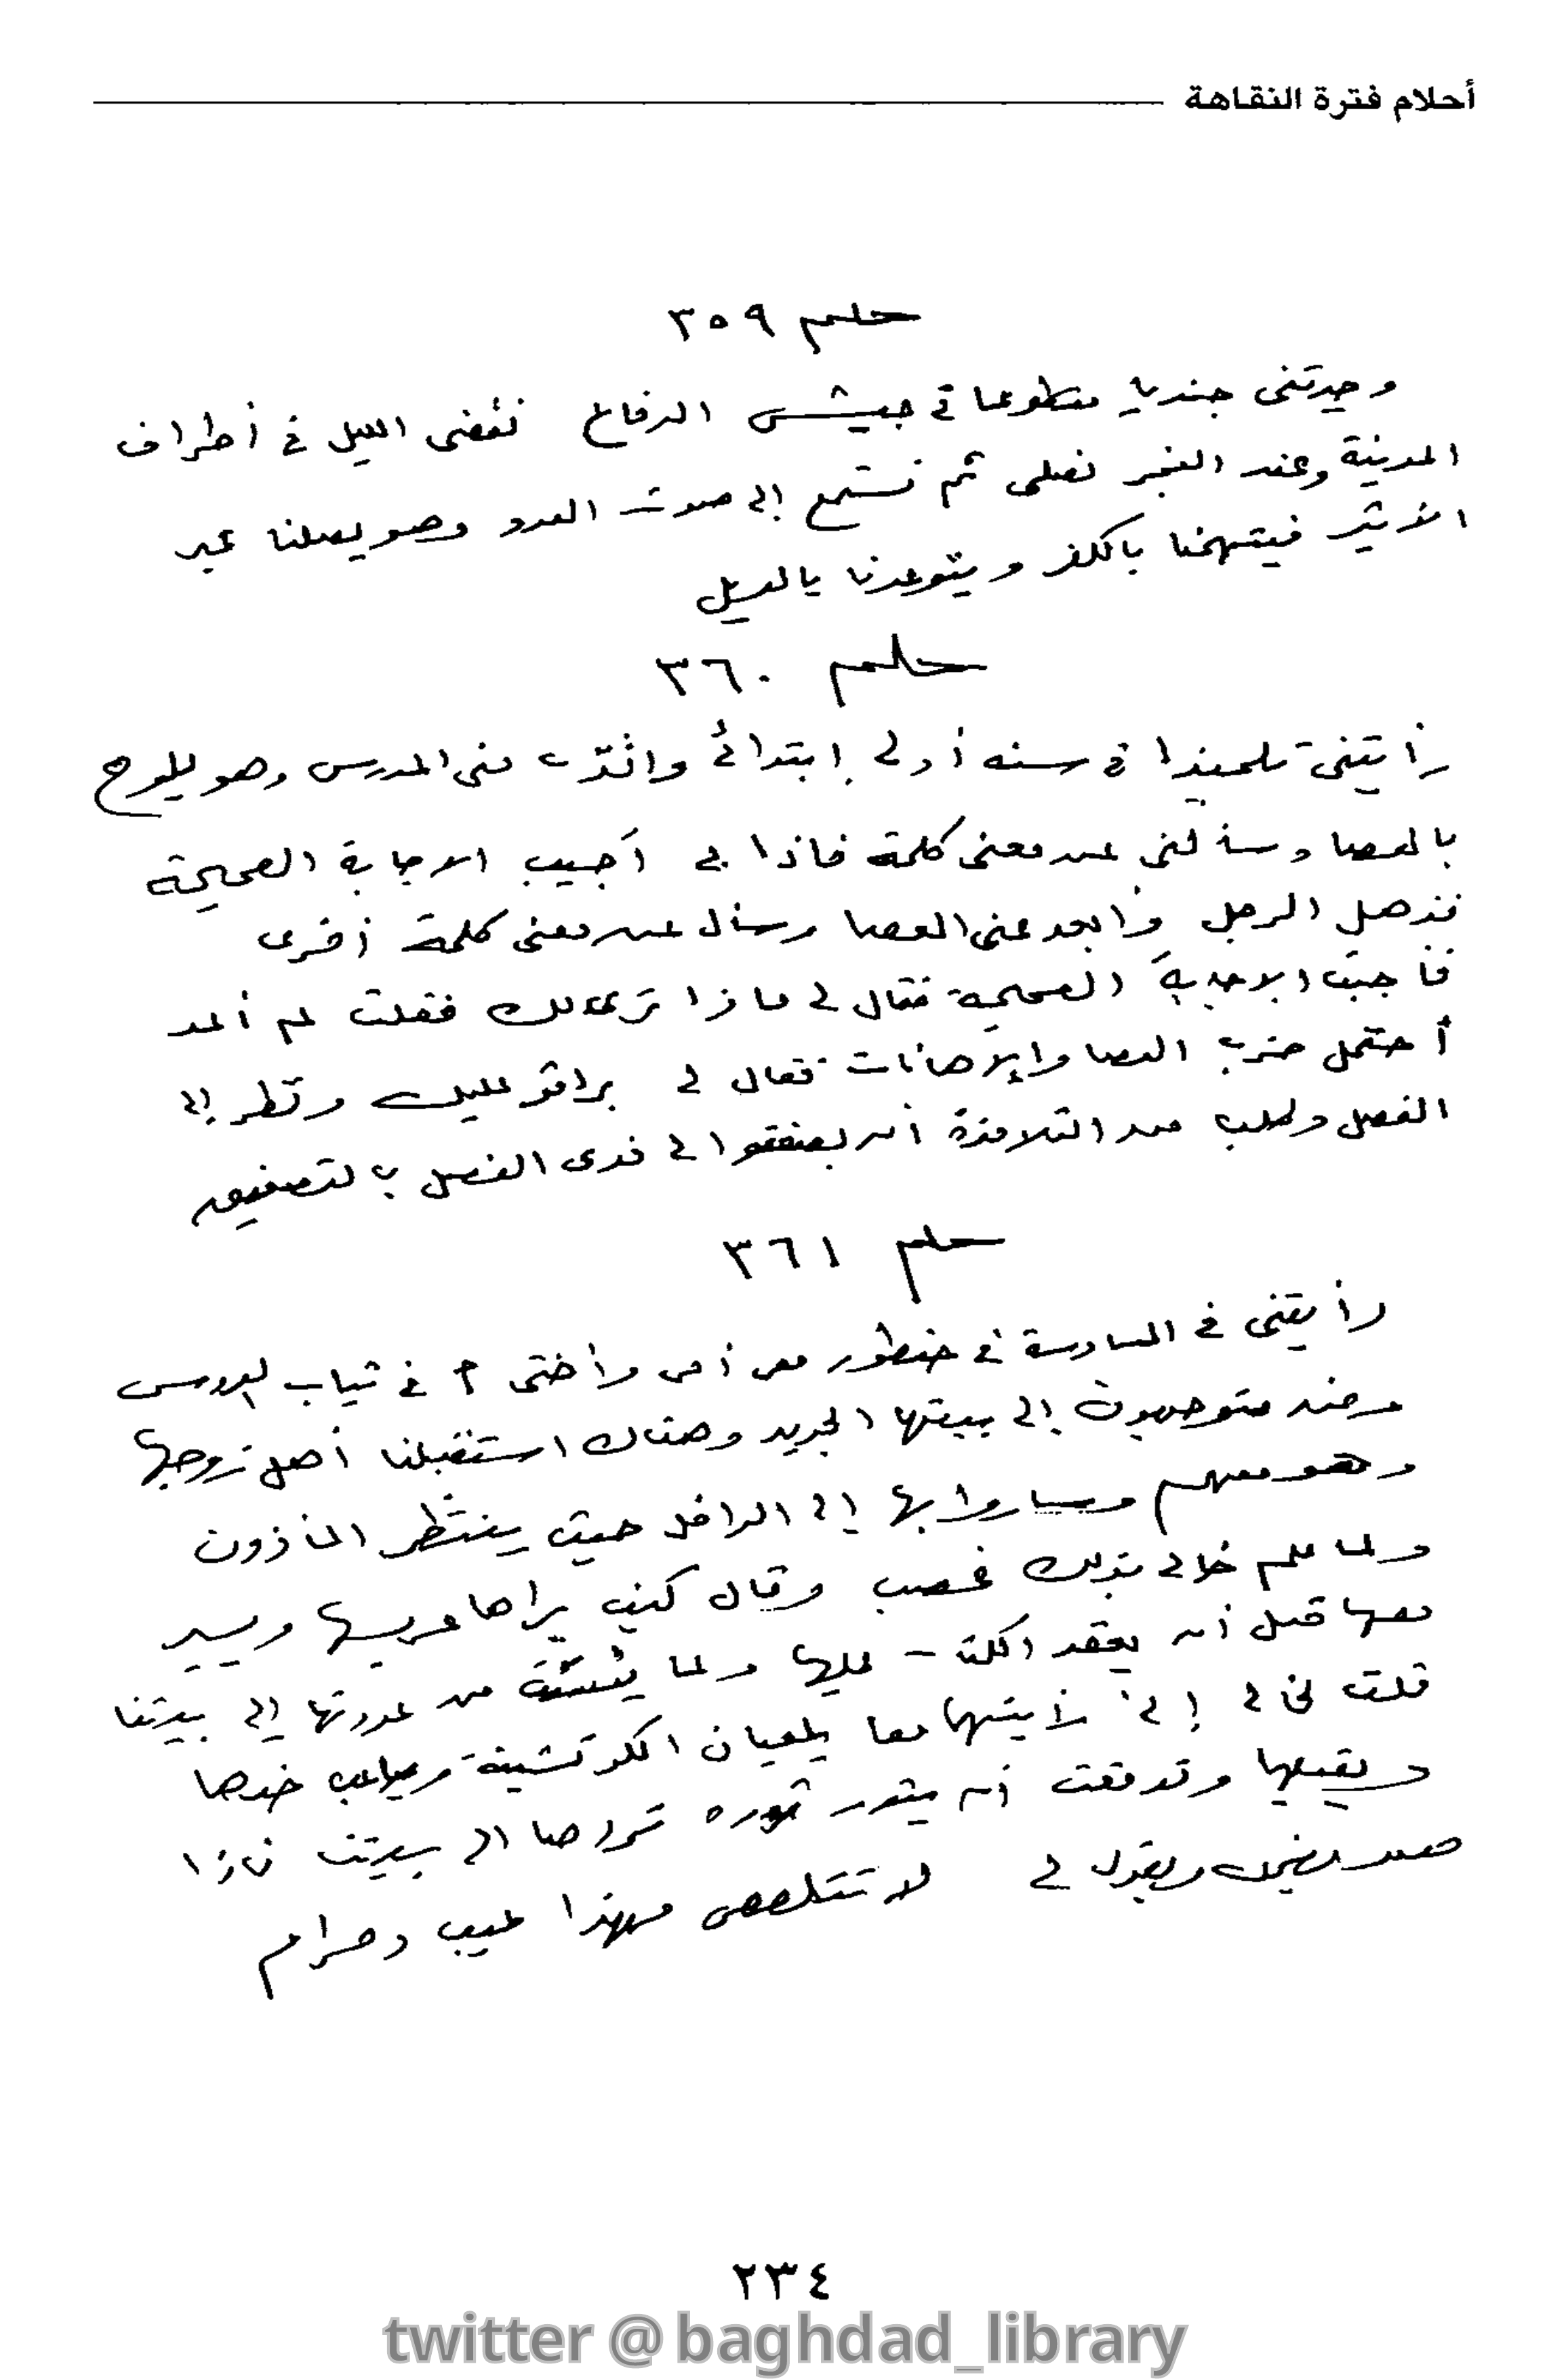 أحلام فترة النقاهة
حلم ٣٥٩
وجدتنى جنديا متطوعا فى جيش الدفاع نقضى الليل فى أطراف
المدينة وعند الفجر نصلى ثم نستمع إلى صوت العدو وهو يصلنا عبر
الأثير فيتهمنا بالكفر ويتوعدنا بالويل
حلم ٣٦٠
رأيتنى تلميذا فى سنه أولى إبتدائى واقترب منى المدرس وهو يلوح
بالعصا وسألنى عن معنى كلمة فاذا بى أجيب الاجابة الصحيحة
فذهل الرجل وأبعد عنى العصا وسأل عن معنى كلمة أخرى
فأجبت الاجابة الصحيحة فقال لى ماذا جرى لك فقلت لم أعد
أحتمل ضرب العصا والإهانات فقال لى برافو عليك ونظر إلى
الفصل وطلب من التلامذة أن يصفقوا لى فدوى الفصل بالتصفيق
حلم ٣٦١
رأيتنى فى السادسة فى حنطور مع أمى وأختى م فى ثياب العروس
ونحن متوجهون إلى بيتها الجديد وهناك استقبلنا أهل زوجها
وهو معهم وساروا بها إلى الداخل حيث ينتظر المأذون
ولما علم خالى بذلك غضب وقال كيف يراها عريسها ويسير
معها قبل أن يعقد عليها ولما يئست من عودتها إلى بيتنا
قلت لخالى إنى رأيتهما معا يلعبان الكوتشينة ويداعب خدها
ويقبلها وتوقعت أن يثور ثوره تردها الى بيتنا فاذا
يضحك ويقول لى لا تتلصص فهذا عيب وحرام
٢٣٤
twitter @baghdad_library